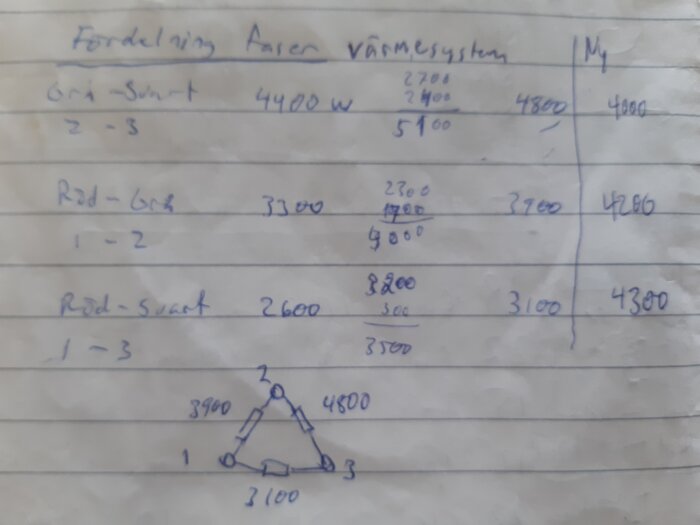 Fördelning faser värmesystem Ny
Grå-Svart 4400 W 2700 4800 4000
2400
2 - 3 5100
Röd-Grå 3300 2300 3900 4200
1700
1 - 2 4000
Röd-Svart 2600 3200 3100 4300
300
1 - 3 3500
2
3900 4800
1 3
3100